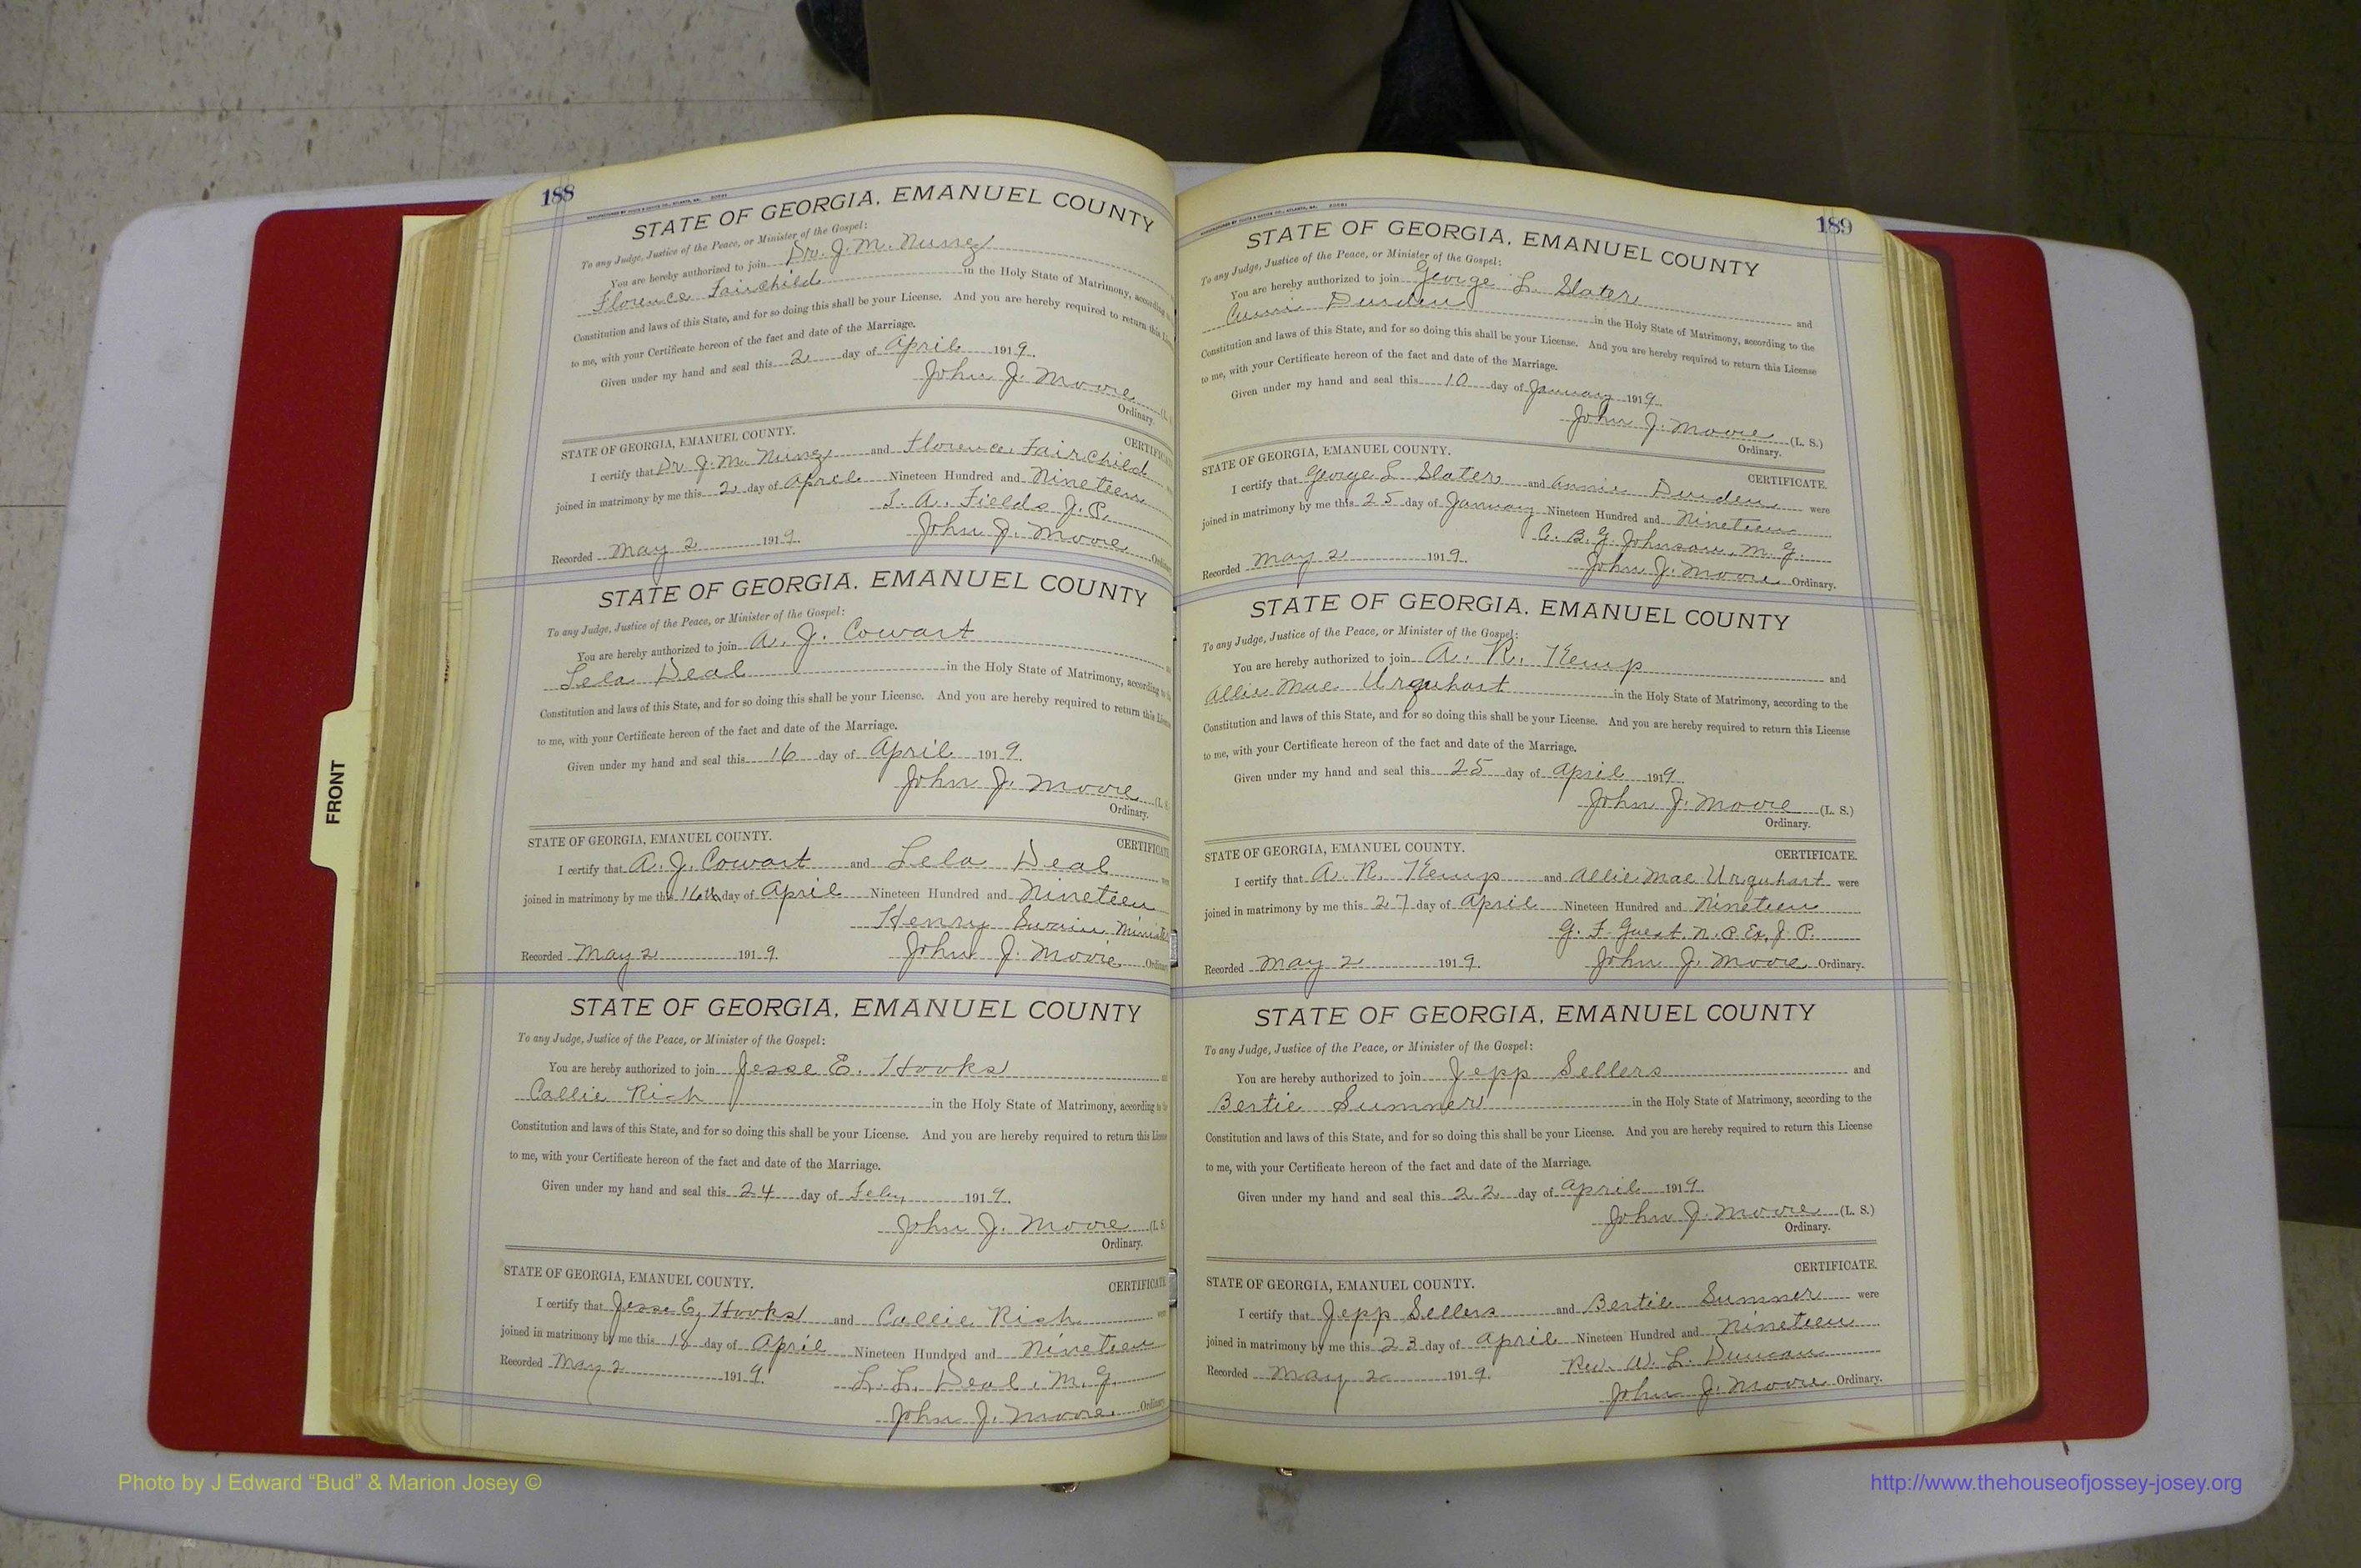 188
STATE OF GEORGIA, EMANUEL COUNTY
To any Judge, Justice of the Peace, or Minister of the Gospel:
You are hereby authorized to join Dr. J. M.
Florence Fairchild in the Holy State of Matrimony, according
Constitution and laws of this State, and for so doing this shall be your License. And you are hereby required to return this
to me, with your Certificate hereon of the fact and date of the Marriage.
Given under my hand and seal this 2 day of April 1919.
John J. Moore
Ordinary.
STATE OF GEORGIA, EMANUEL COUNTY.
I certify that Dr. J. M. and Florence Fairchild
joined in matrimony by me this 2 day of April Nineteen Hundred and Nineteen
Fields J. P.
Recorded May 2 1919. John J. Moore
STATE OF GEORGIA. EMANUEL COUNTY
To any Judge, Justice of the Peace, or Minister of the Gospel:
You are hereby authorized to join A. J. Cowart
Lela Deal in the Holy State of Matrimony, according
Constitution and laws of this State, and for so doing this shall be your License. And you are hereby required to return this
to me, with your Certificate hereon of the fact and date of the Marriage.
Given under my hand and seal this 16 day of April 1919.
John J. Moore
Ordinary.
STATE OF GEORGIA, EMANUEL COUNTY. CERTIFICATE
I certify that A. J. Cowart and Lela Deal
joined in matrimony by me this 16th day of April Nineteen Hundred and Nineteen
Henry Swain
Recorded May 2 1919. John J. Moore
STATE OF GEORGIA, EMANUEL COUNTY
To any Judge, Justice of the Peace, or Minister of the Gospel:
You are hereby authorized to join Jesse E. Hooks
Callie Rich in the Holy State of Matrimony, according
Constitution and laws of this State, and for so doing this shall be your License. And you are hereby required to return this
to me, with your Certificate hereon of the fact and date of the Marriage.
Given under my hand and seal this 24 day of Feby 1919.
John J. Moore
Ordinary.
STATE OF GEORGIA, EMANUEL COUNTY. CERTIFICATE
I certify that Jesse E. Hooks and Callie Rich
joined in matrimony by me this 18 day of April Nineteen Hundred and Nineteen
Recorded May 2 1919. L. L. Deal, M. G.
John J. Moore
189
STATE OF GEORGIA. EMANUEL COUNTY
To any Judge, Justice of the Peace, or Minister of the Gospel:
You are hereby authorized to join George L. Slater and
Annie Durden in the Holy State of Matrimony, according to the
Constitution and laws of this State, and for so doing this shall be your License. And you are hereby required to return this License
to me, with your Certificate hereon of the fact and date of the Marriage.
Given under my hand and seal this 10 day of January 1919.
John J. Moore (L. S.)
Ordinary.
STATE OF GEORGIA, EMANUEL COUNTY. CERTIFICATE.
I certify that George L Slater and Annie Durden were
joined in matrimony by me this 25 day of January Nineteen Hundred and Nineteen
C. B. G. Johnson, M. G.
Recorded May 2 1919. John J. Moore Ordinary.
STATE OF GEORGIA. EMANUEL COUNTY
To any Judge, Justice of the Peace, or Minister of the Gospel:
You are hereby authorized to join A. R. Kemp and
Allie Mae Urquhart in the Holy State of Matrimony, according to the
Constitution and laws of this State, and for so doing this shall be your License. And you are hereby required to return this License
to me, with your Certificate hereon of the fact and date of the Marriage.
Given under my hand and seal this 25 day of April 1919.
John J. Moore (L. S.)
Ordinary.
STATE OF GEORGIA, EMANUEL COUNTY. CERTIFICATE.
I certify that A. R. Kemp and Allie Mae Urquhart were
joined in matrimony by me this 27 day of April Nineteen Hundred and Nineteen
G. F. Guest. N. P. Ex. J. P.
Recorded May 2 1919. John J. Moore Ordinary.
STATE OF GEORGIA, EMANUEL COUNTY
To any Judge, Justice of the Peace, or Minister of the Gospel:
You are hereby authorized to join Jepp Sellers and
Bertie Sumner in the Holy State of Matrimony, according to the
Constitution and laws of this State, and for so doing this shall be your License. And you are hereby required to return this License
to me, with your Certificate hereon of the fact and date of the Marriage.
Given under my hand and seal this 22 day of April 1919.
John J. Moore (L. S.)
Ordinary.
STATE OF GEORGIA, EMANUEL COUNTY. CERTIFICATE.
I certify that Jepp Sellers and Bertie Sumner were
joined in matrimony by me this 23 day of April Nineteen Hundred and Nineteen
Recorded May 2 1919. Rev. W. L. Duncan
John J. Moore Ordinary.
FRONT
Photo by J Edward “Bud” & Marion Josey ©
http://www.thehouseofjossey-josey.org